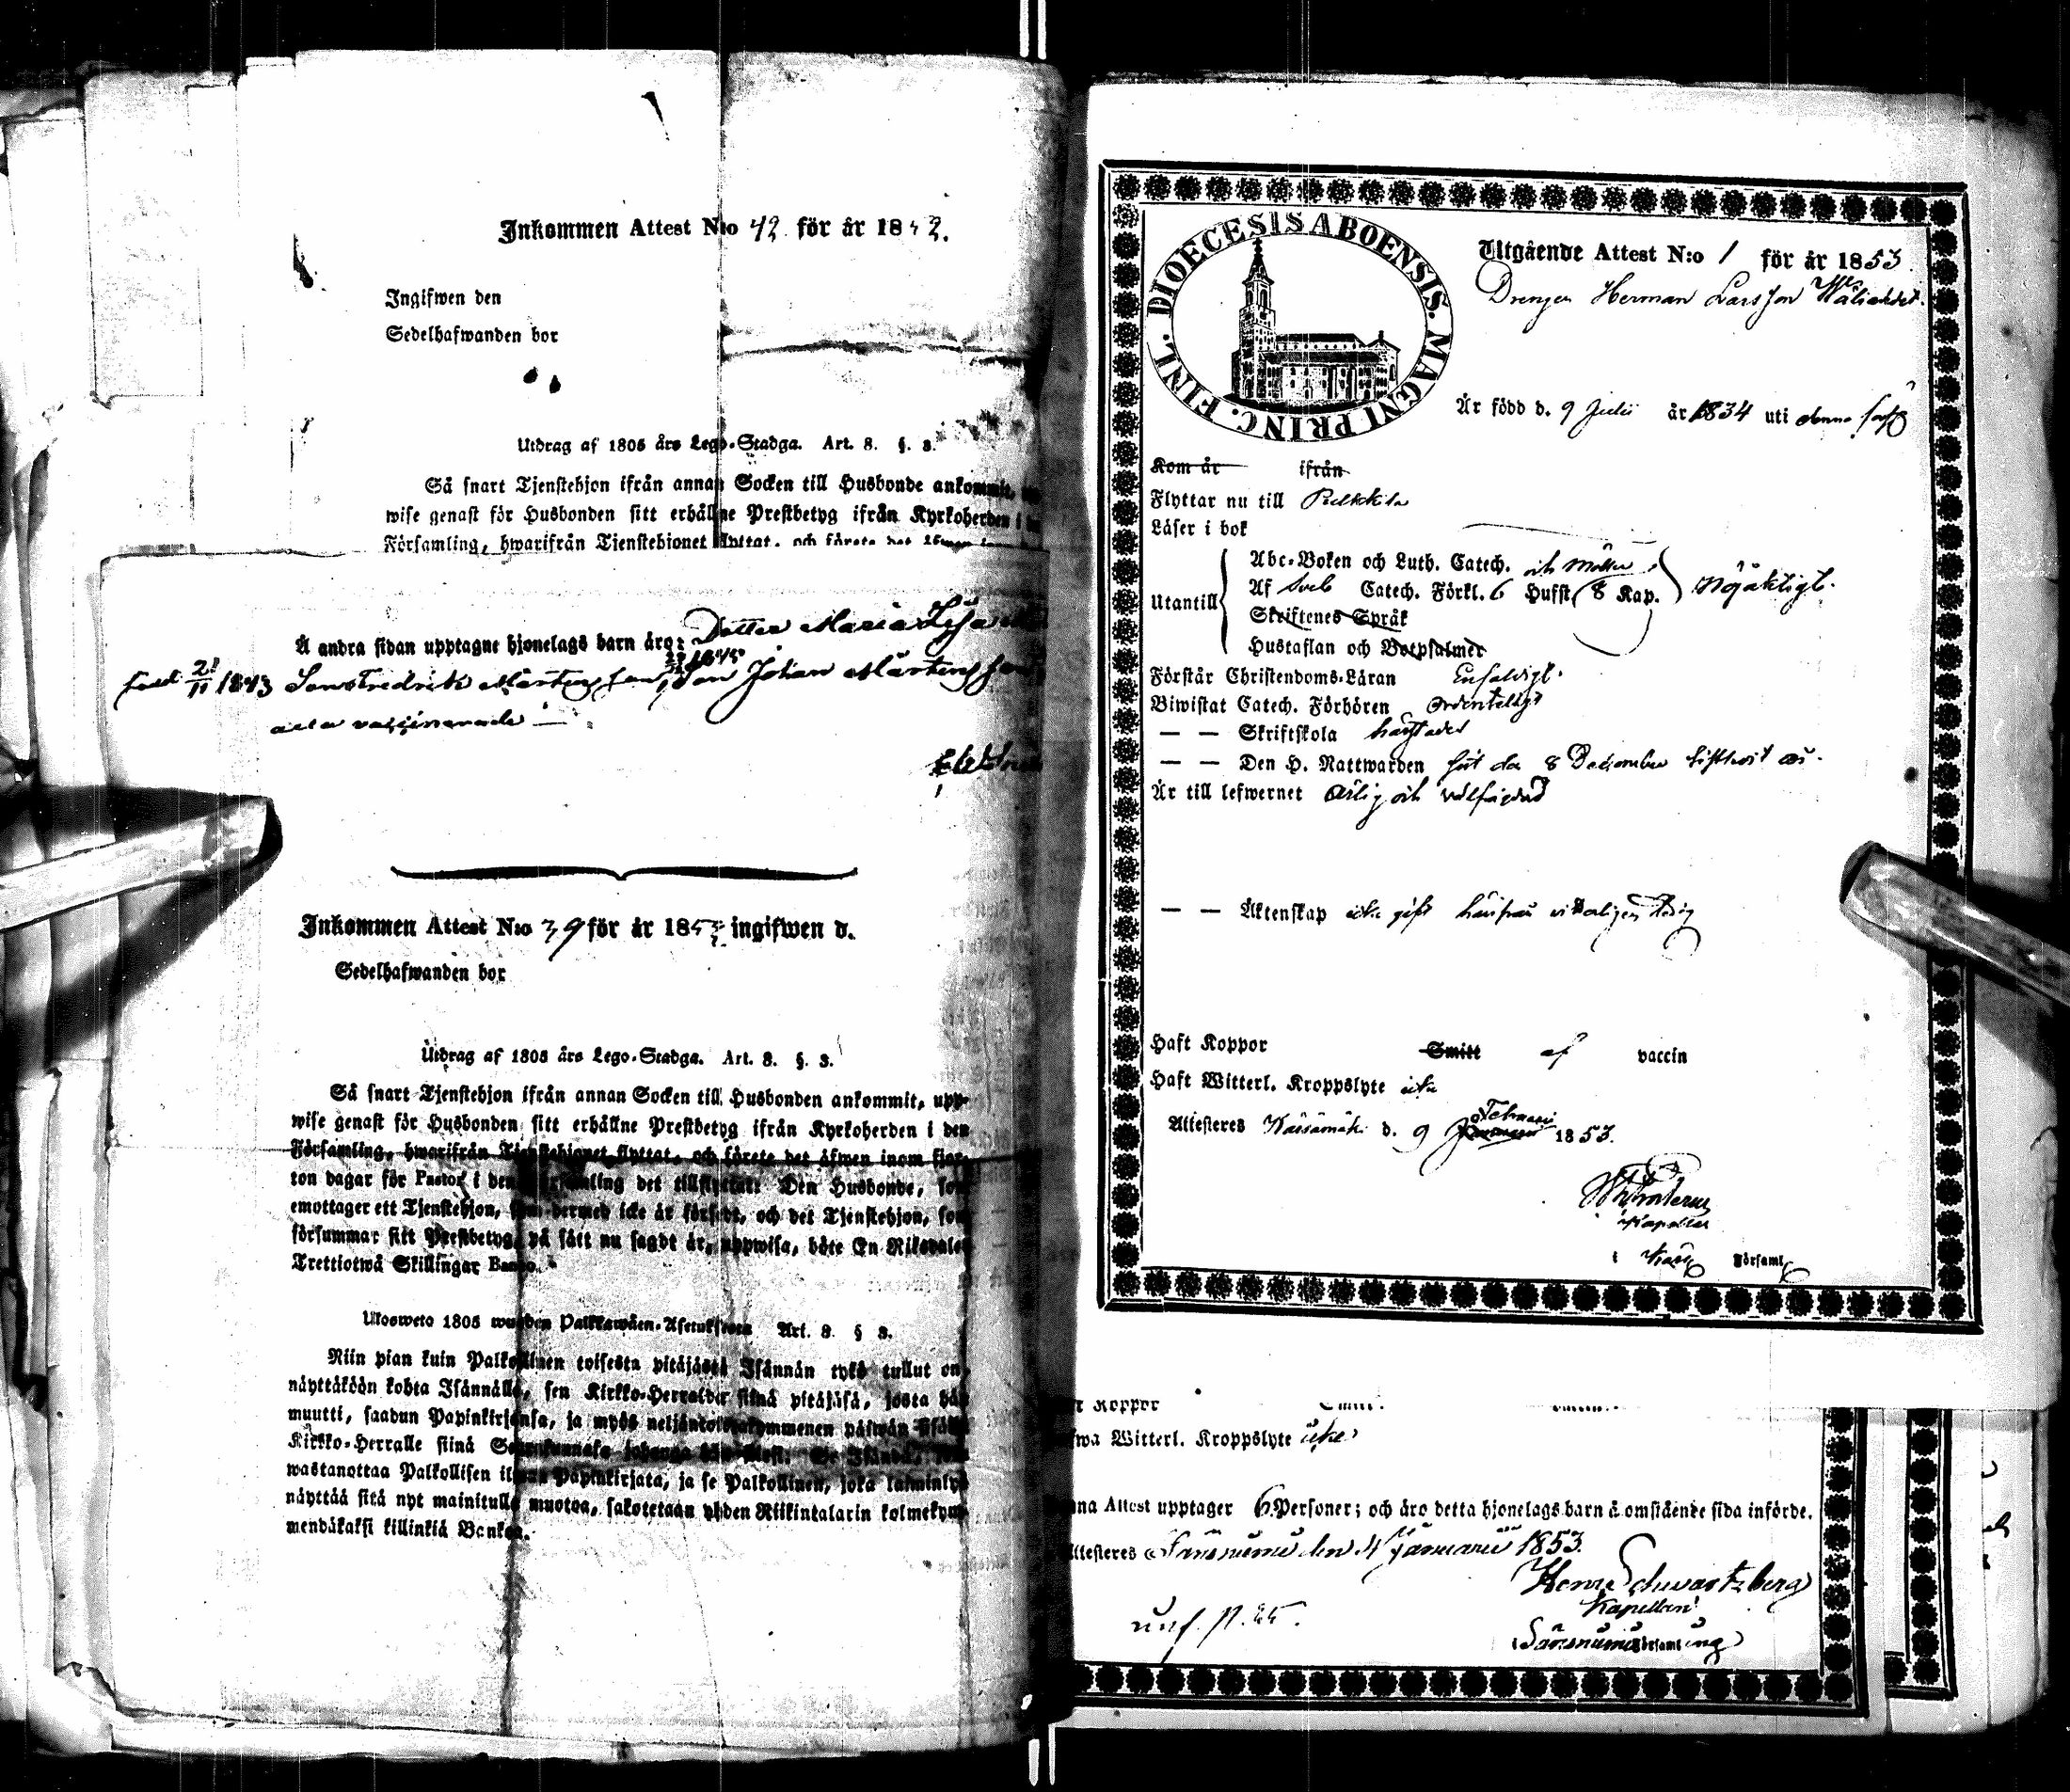 Inkommen Attest N:o 42 för år 1852.
Ingifwen den
Sedelhafwanden bor
Utdrag af 1805 års Lego-Stadga. Art. 8. §. 3.
Så snart Tjenstehjon ifrån annan Socken till Husbonde ankommit,
wise genast för Husbonden sitt erhållne Prestbetyg ifrån Kyrkoherden i
Församling, hwarifrån Tjenstehjonet flyttat, och förete det äfwen inom
Å andra sidan upptagne hjonelags barn äro: Dotter Maria Lisa
född 21/11 1843 Son Fredrik Mårtensson, Son Johan Mårtensson
alla vaccinerade
Inkommen Attest N:o 39 för år 1853 ingifwen d.
Sedelhafwanden bor
Utdrag af 1805 års Lego-Stadga. Art. 8. §. 3.
Så snart Tjenstehjon ifrån annan Socken till Husbonden ankommit, upp-
wise genast för Husbonden sitt erhållne Prestbetyg ifrån Kyrkoherden i den
Församling, hwarifrån Tjenstehjonet flyttat, och förete det äfwen inom fjor-
ton dagar för Pastor i den Församling det tillflyttat: Den Husbonde, som
emottager ett Tjenstehjon, som dermed icke är försedt, och det Tjenstehjon, som
försummar sitt Prestbetyg, på sätt nu sagdt är, uppwisa, böte En Riksdaler
Trettiotwå Skillingar Banco.
Ulosweto 1805 wuoden Palkkawäen-Asetuksesta Art. 8. § 3.
Niin pian kuin Palkollinen toisesta pitäjästä Isännän tykö tullut on,
näyttäköön kohta Isännälle, sen Kirkko-Herralda siinä pitäjäsä, josta hän
muutti, saadun Papinkirjansa, ja myös neljäntoistakymmenen päiwän sisällä
Kirkko-Herralle siinä Seurakunnasa johonga
wastanottaa Palkollisen ilman Papinkirjata, ja se Palkollinen, joka laiminlyö
näyttää sitä nyt mainitulla muotoa, sakotetaan yhden Riikintalarin kolmekym-
mendäkaksi killinkiä Bankoa.
DIOECESIS ABOENSIS. MAGNI PRINC. FINL.
Utgående Attest N:o 1 för år 1853.
Drengen Herman Larsson
Är född d. 9 Julii år 1834 uti denna
Kom år ifrån
Flyttar nu till Pulkkila
Läser i bok
Utantill
Abc-Boken och Luth. Catech. och
Af Sveb Catech. Förkl. 6 Hufst. 8 Kap. Nöjaktigt.
Skriftenes Språk
Hustaflan och Botpsalmer
Förstår Christendoms-Läran Enfaldigt.
Biwistat Catech. Förhören Ordentligt
— — Skriftskola
— — Den H. Nattwarden 8 December sistledit år.
Är till lefwernet ärlig och välfrägdad
— — Äktenskap icke gift härifrån
Haft Koppor Smitt af vaccin
Haft Witterl. Kroppslyte icke
Attesteres Kärsämäki d. 9 Januarii Februarii 1853.
Kapellan
i Församl
Koppor
Witterl. Kroppslyte icke
Attest upptager 6 Personer; och äro detta hjonelags barn å omstående sida införde.
Attesteres Säresniemi den 4 Januarii 1853.
Henr Schwartzberg
Kapellan
i Säresniemi Församling